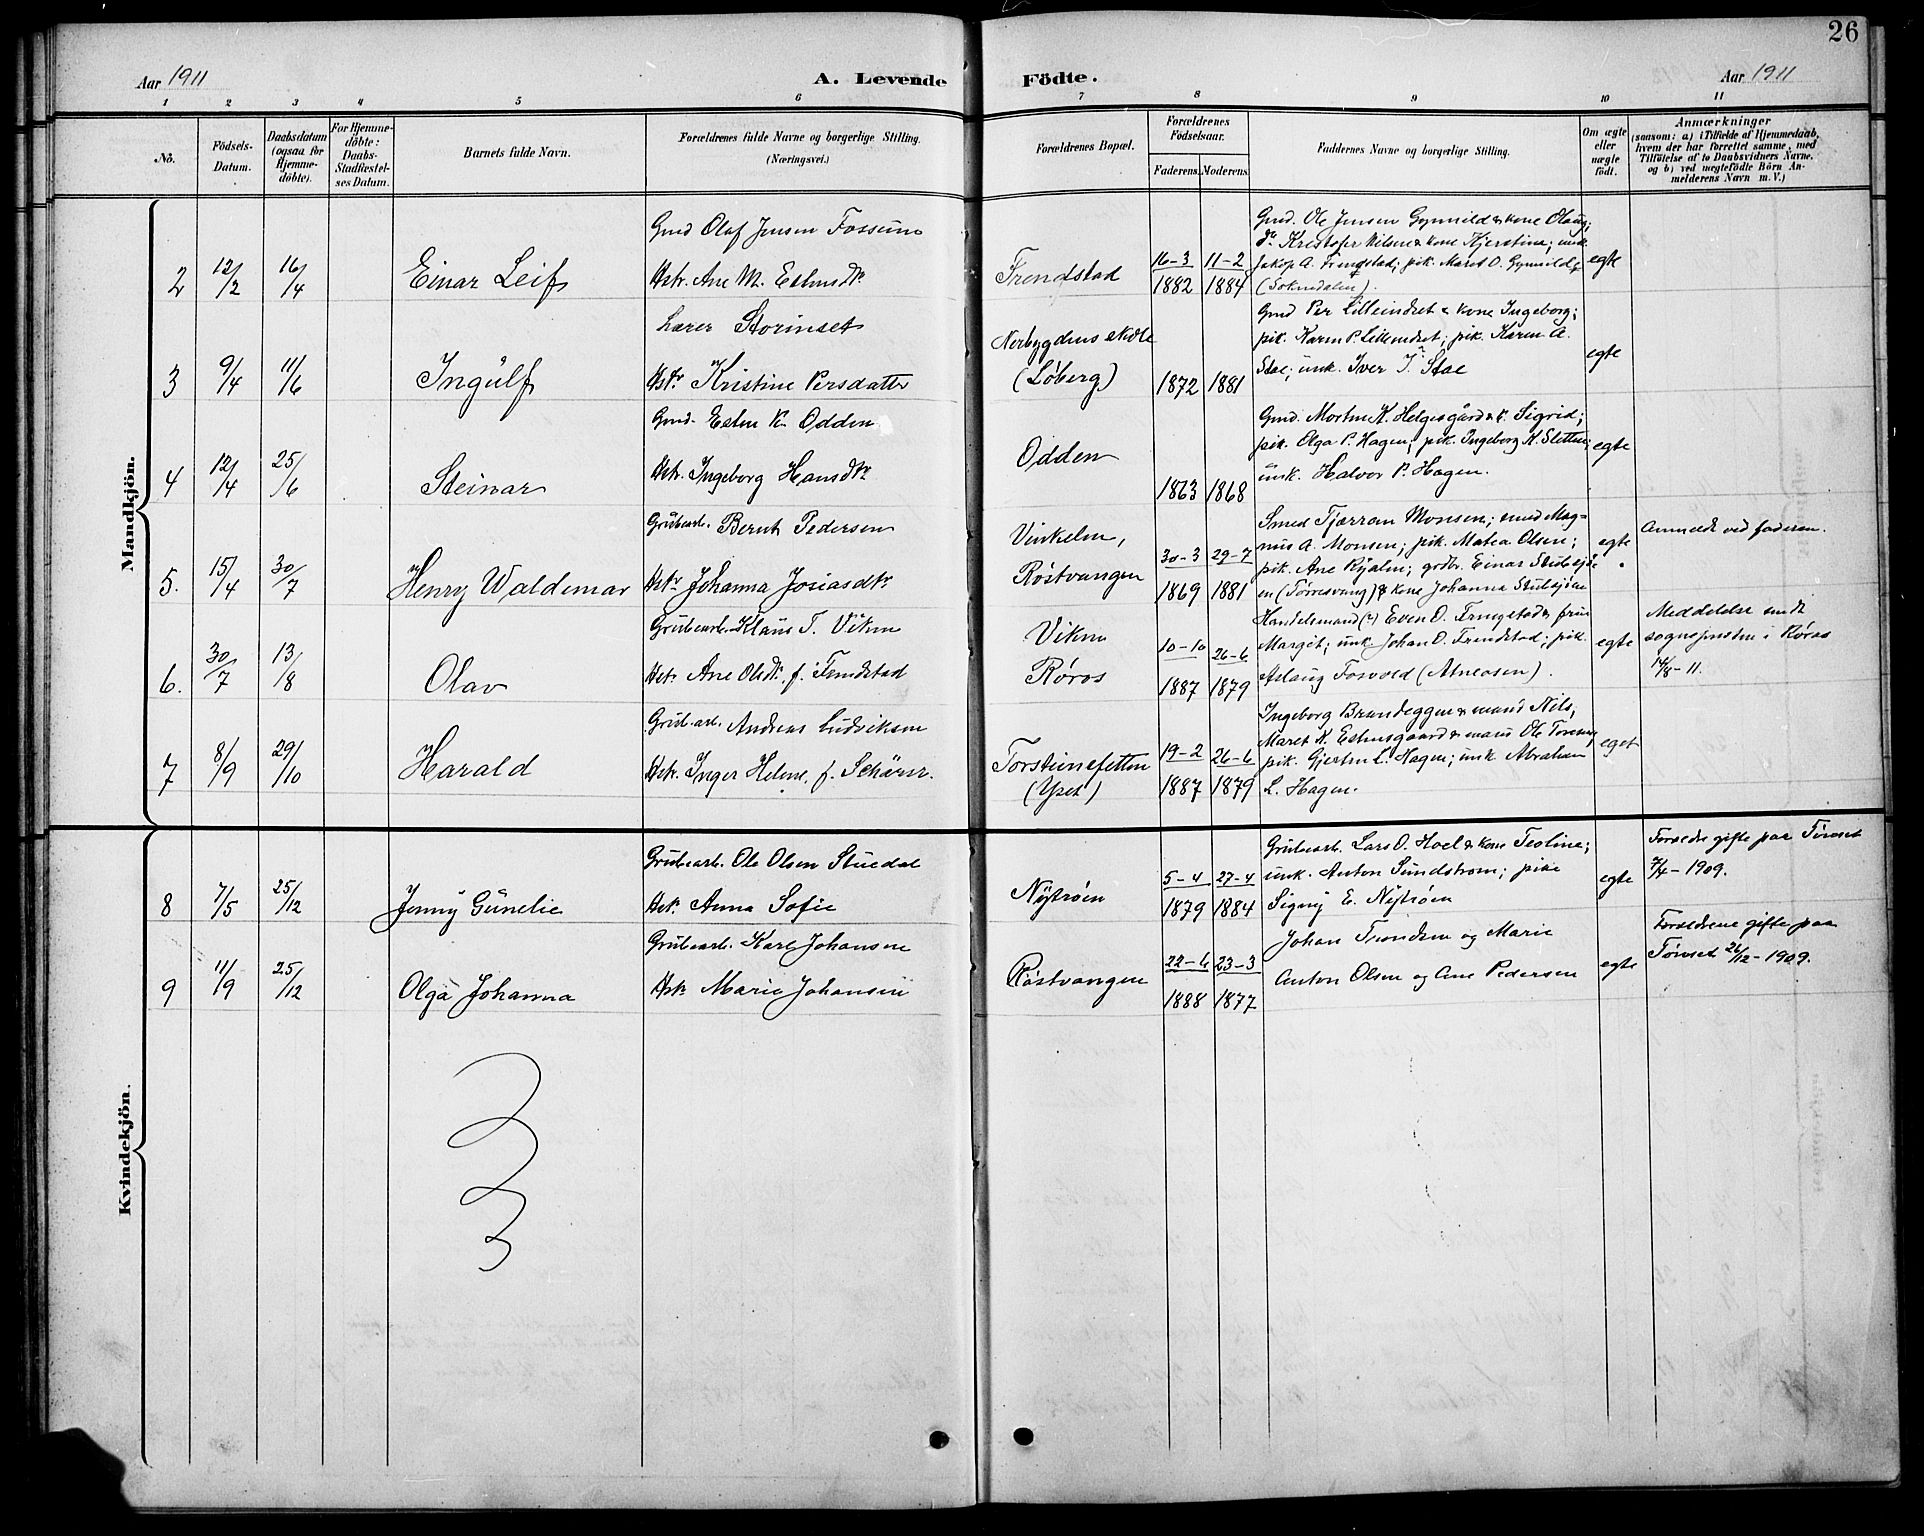 26
Aar 1911
A. Levende Födte.
Aar 1911
1 2 3 4 5 6 7 8 9 10 11
No.
Födsels-
Datum.
Daabsdatum
(ogsaa for
Hjemme-
döbte).
For Hjemme-
döbte:
Daabs-
Stadfæstel-
ses Datum.
Barnets fulde Navn.
Forældrenes fulde Navne og borgerlige Stilling.
(Næringsvei.)
Forældrenes Bopæl.
Forældrenes
Födselsaar.
Faderens. Moderens.
Faddernes Navne og borgerlige Stilling.
Om ægte
eller
uægte
födt.
Anmærkninger
(saasom: a) i Tilfælde af Hjemmedaab,
hvem der har forrettet samme, med
Tilföielse af to Daabsvidners Navne,
og b) ved uægtefödte Börn An-
melderens Navn m. V.)
Mandkjön.
2 12/2 16/4 Einar Leif
Gmd Olaf Jensen Fossum
Hstr. Ane M. Estensdtr.
Trondstad
16-3 11-2
1882 1884
Gmd. Ole Jensen Gynnild & kone Olaug;
do Kristofer Nilsen & kone Kjerstine; unk.
Jakop A. ; pik. Maret O. Gynnild
(Soknedalen).
egte
3 9/4 11/6 Ingulf
Lærer Storinset
Hstr. Kristine Persdatter
Nerbygdens skole
(Løberg)
1872 1881
Gmd Per Lilleindset & kone Ingeborg;
pik. Karen P. Lilleindset; pik. Karen A.
Stae; unk. Iver J. Stae
egte
4 12/4 25/6 Steinar
Gmd. Esten K. Odden
Hstr. Ingeborg Hansdtr.
Odden
1863 1868
Gmd. Morten K. Helgesgård & k. Sigrid;
pik. Olga P. Hagen; pik. Ingeborg K. Sletten;
unk. Halvor P. Hagen.
egte
5. 15/4 30/7 Henry Waldemar
Grubearb. Bernt Pedersen
Hstr Johanna Josiasdtr
Vinkelen,
Röstvangen
30-3 29-7
1869 1881
Smed Tjærran Monsen; smed Mag-
nus A. Monsen; pik. Matea Olsen;
pik. Ane Ryalen; grdbr. Einar
en (Tørresvang) & kone Johanna
egte
Anmeldt ved faderen.
6. 30/7 13/8 Olav
Grubearb. Klaus T. Viken
Hstr. Ane Olsdtr. f. Trondstad
Viken
Røros
10-10 26-6
1887 1879
Handelsmand (?) Even O. & frue
Marget; unk. Johan O. Trondstad; pik.
Aslaug Fosvold (Atneosen).
egte
Meddelelse sendt
sognepresten i Røros
14/8-11.
7 8/9 29/10 Harald
Grubearb. Andreas Ludviksen
Hstr. Inger Helene, f. Schärer.
Torsteinsletten
(Yset)
19-2 26-6
1887 1879
Ingeborg Brandeggen & mand Nils;
Maret K. Estensgaard & mand Ole Toresen,
pik. Gjertru L. Hagen; unk Abraham
L. Hagen.
eget
Kvindekjön.
8 7/5 25/12 Jenny Gunelie
Grubearb. Ole Olsen Stuedal
Hstr. Anna Sofie
Nytrøen
5-4 27-4
1879 1884
Grubearb. Lars O. Hoel & kone Teoline;
unk. Anton Sundstrøm; pike
Signy E. Nytrøen
egte
Forældre gifte paa Tönset
7/4-1909.
9 11/9 25/12 Olga Johanna
Grubearb. Karl Johansen
Hstr. Marie Johansen
Röstvangen
22-6 23-3
1888 1877
Johan Trondsen og Marie
Anton Olsen og Ane Pedersen
egte
Forældrene gifte paa
Tönset 26/12-1909.